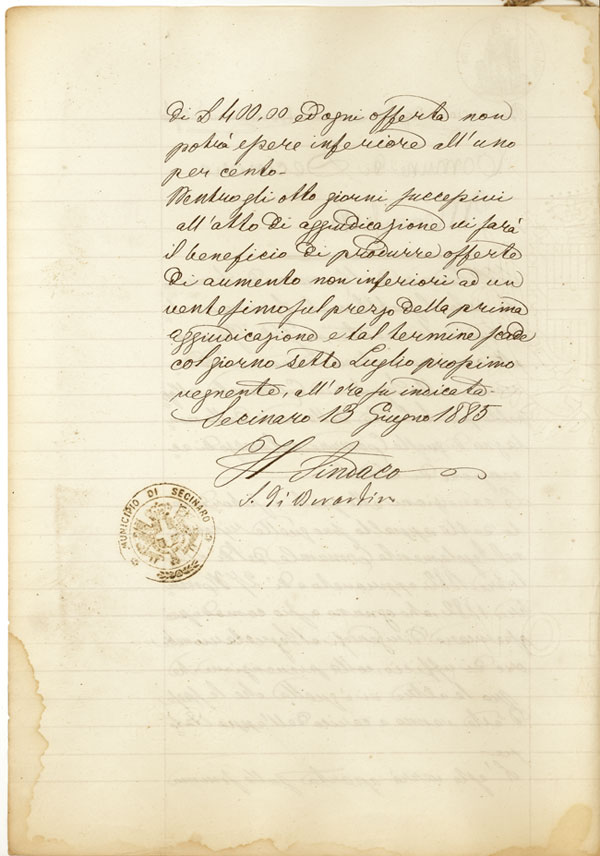 di £ 400,00 ed ogni offerta non
potrà essere inferiore all'uno
per cento-
Dentro gli otto giorni successivi
all'atto di aggiudicazione vi sarà
il beneficio di produrre offerte
di aumento non inferiori ad un
ventesimo sul prezzo della prima
aggiudicazione e tal termine scade
col giorno sette Luglio prossimo
vegnente, all'ora su indicata-
Secinaro 13 Giugno 1885
Il Sindaco
MUNICIPIO DI SECINARO